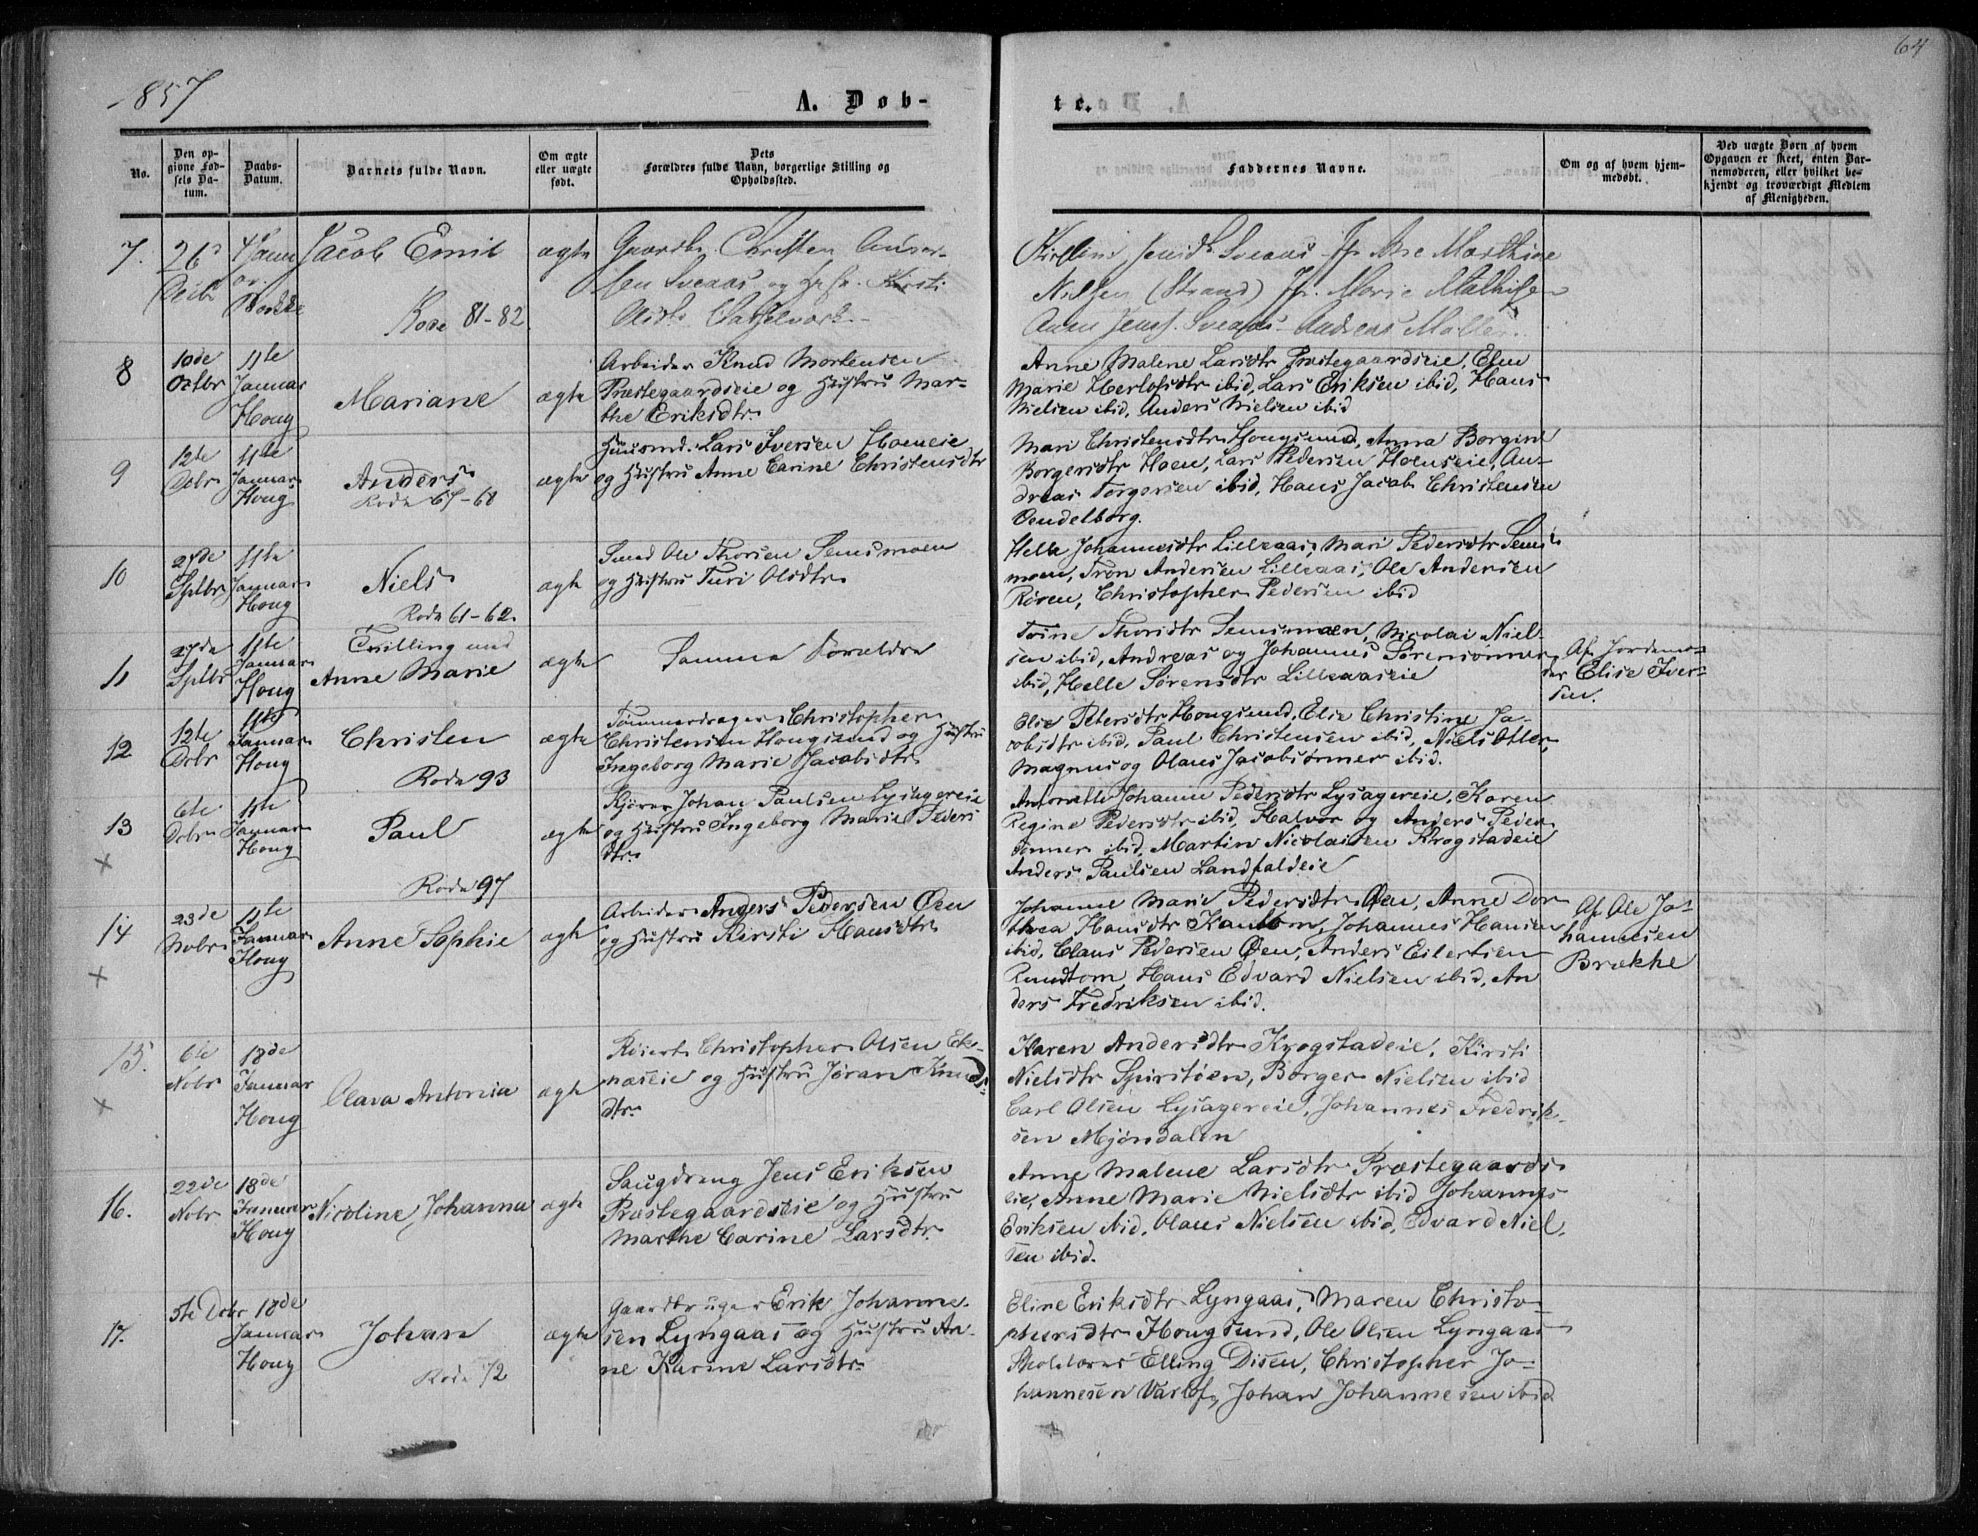 1857
64
A. Døb-
te.
No.
Den op-
givne Fød-
sels Da-
tum.
Daabs-
Datum.
Barnets fulde Navn.
Om ægte
eller uægte
født.
Dets
Forældres fulde Navn, borgerlige Stilling og
Opholdssted.
Faddernes Navne.
Om og af hvem hjem-
medøbt.
Ved uægte Børn af hvem
Opgaven er skeet, enten Bar-
nemoderen, eller hvilket be-
kjendt og troværdigt Medlem
af Menigheden.
7.
26
Jacob Emil
Rode 81-82
ægte
Gaardbr. Christen Ander-
sen Sveaas og
Sveaas
Marthine
Nielsen (Strand) Jfr. Marie Mathilde
Sveaas Andreas Møller
8
10de
Octbr
11te
Januar
Houg
Mariane
ægte
Arbeider Knud Mortensen
Præstegaardseie og Hustru Mar-
the Eriksdtr
Anne Malene Larsdtr Præstegaardseie, Elen
Marie Herlofsdtr ibid, Lars Eriksen ibid, Hans
Nielsen ibid, Anders Nielsen ibid
9
12te
Debr
11te
Januar
Houg
Anders
Rode 67-68
ægte
Huusmd. Lars Iversen Hoeneie
og Hustru Anne Carine Christensdtr
Mari Christensdtr Hougsund, Anna Borgine
Borgersdtr Hoen, Lars Pedersen Hoenseie, An-
dreas Torgersen ibid, Hans Jacob Christensen
Vendelborg.
10
27de
Sptbr
11te
Januar
Houg
Niels
Rode 61-62.
ægte
Smed Ole Thorsen Semsmoen
og Hustru Turi Olsdtr
Helle Johannesdtr Lilleaas, Mari Pedersdtr Sems-
moen, Tron Andersen Lilleaas, Ole Andersen
Røren, Christopher Pedersen ibid
11
27de
Sptbr
11te
Januar
Houg
Tvilling med
Anne Marie
ægte
Samme Forældre
Toine Thorsdtr Semsmoen, Nicolai Niel-
sen ibid, Andreas og Johannes Sørensønner
ibid, Helle Sørensdtr Lilleaaseie
Af Jordemo-
der Elise Iver-
sen.
12
12te
Debr
11te
Januar
Houg
Christen
Rode 93
ægte
Tømmerdrager Christopher
Christensen Hougsund og Hustru
Ingeborg Marie Jacobsdtr
Elie Petersdtr Hougsund, Elie Christine Ja-
cobsdtr ibid, Paul Christensen ibid, Niels Otter,
Magnus og Olaus Jacobsønner ibid.
13
×
6te
Debr
11te
Januar
Houg
Paul
Rode 97
ægte
Kjører Johan Paulsen Lysagereie
og Hustru Ingeborg Marie Peders
dtr
Antonette Johanne Pedersdtr Lysagereie, Karen
Regine Pedersdtr ibid, Halvor og Anders Peder
sønner ibid, Martin Nicolaisen Krogstadeie
Anders Paulsen Landfaldeie
14
×
23de
Nobr
11te
Januar
Houg
Anne Sophie
ægte
Arbeider Anders Pedersen Øen
og Hustru Kirsti Hansdtr
Johanne Marie Pedersdtr Øen, Anne Dor
thea Hansdtr Rundtom, Johannes Hansen
ibid, Claus Pedersen Øen, Anders Eilertsen
Rundtom, Hans Edvard Nielsen ibid, An
ders Fredriksen ibid.
Af Ole Jo-
hannesen
Brække
15.
×
6te
Nobr
18de
Januar
Houg
Olava Antonia
ægte
Røiert Christopher Olsen Ek-
næseie og Hustru Jøran Knuds
dtr
Karen Andersdtr Krogstadeie, Kirsti
Nielsdtr Spiritøen, Borger Nielsen ibid
Carl Olsen Lysagereie, Johannes Fredrik-
sen Mjøndalen
16.
22de
Nobr
18de
Januar
Houg
Nicoline Johanne
ægte
Saugdreng Jens Eriksen
Præstegaardseie og Hustru
Marthe Carine Larsdtr.
Anne Malene Larsdtr Præstegaards
eie, Anne Marie Nielsdtr ibid Johannes
Eriksen ibid. Olaus Nielsen ibid, Edvard Niel
sen ibid.
17.
5te Debr
18de
Januar
Houg
Johan
Rode 72
ægte
Gaardbruger Erik Johanne-
sen Lyngaas og Hustru An-
ne Karine Larsdtr
Eline Eriksdtr Lyngaas, Maren Christo-
phersdtr Hougsund, Ole Olsen Lyngaas
Skolelærer Elling Disen, Christopher Jo-
hannesen Varlo, Johan Johannesen ibid